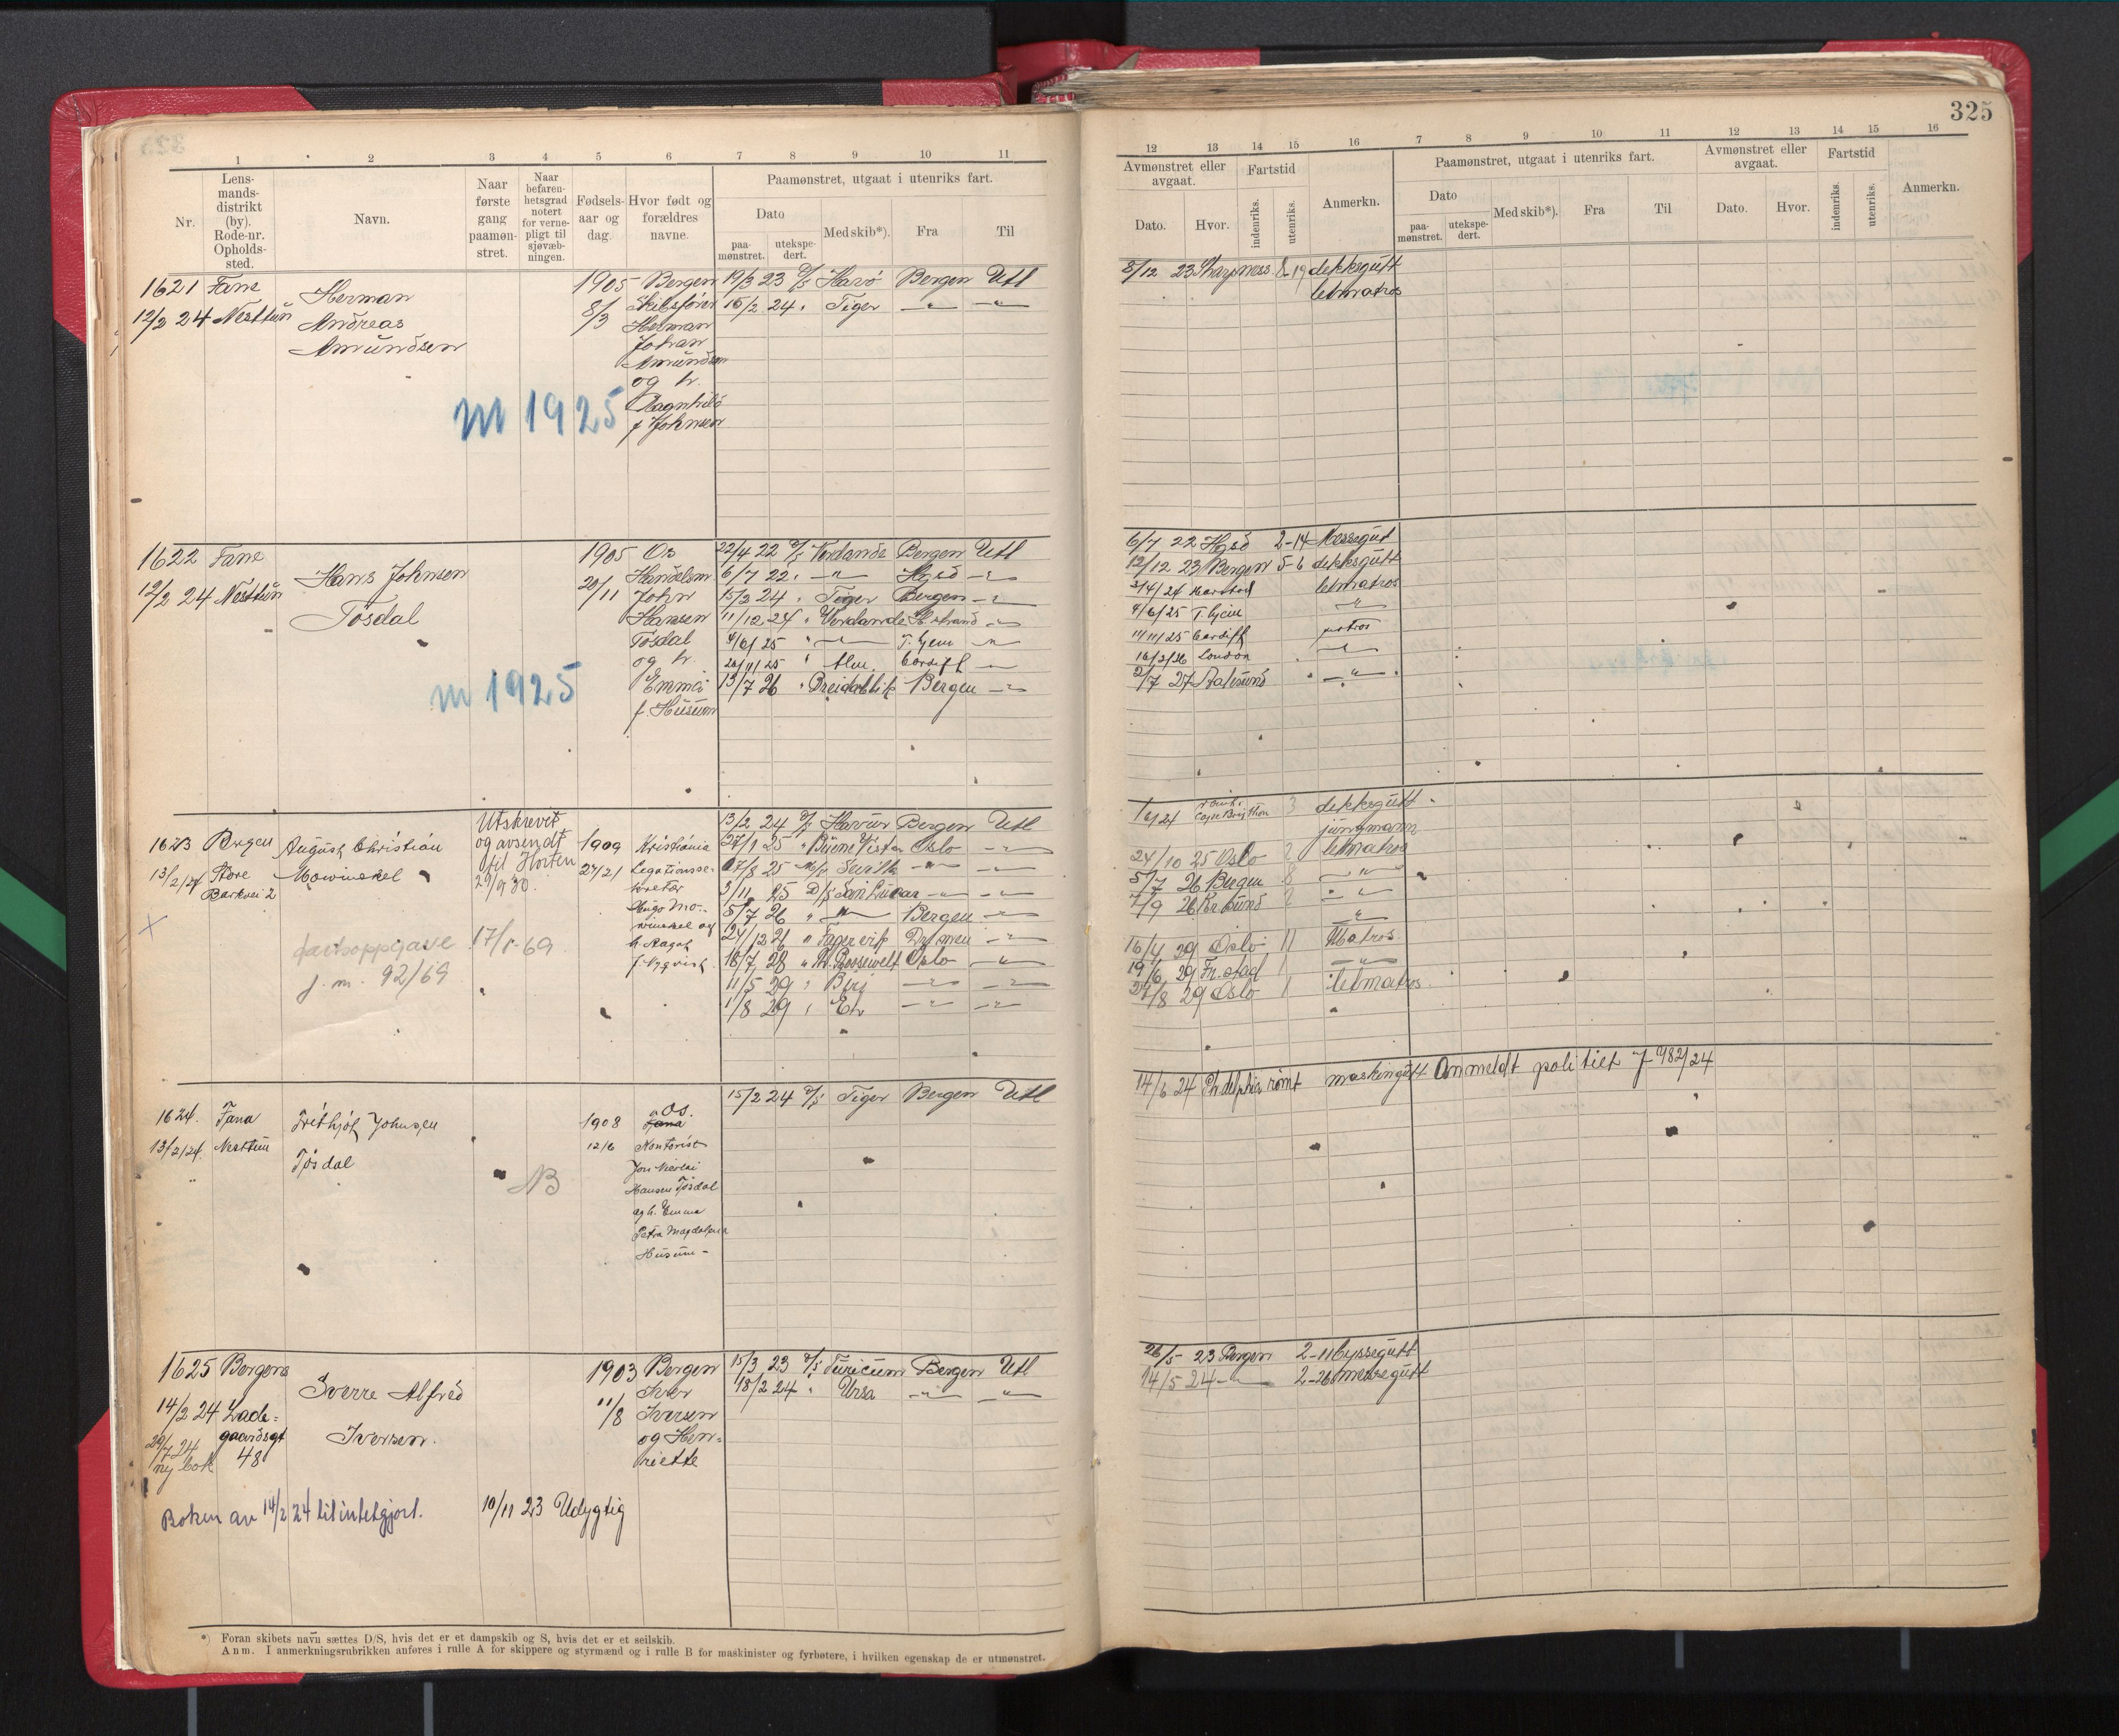 325
1 2 3 4 5 6 7 8 9 10 11
Nr.
Lens-
mands-
distrikt
(by).
Rode-nr.
Opholds-
sted.
Navn.
Naar
første
gang
paamøn-
stret.
Naar
befaren-
hetsgrad
notert
for verne-
pligt til
sjøvæb-
ningen.
Fødsels-
aar og
dag.
Hvor født og
forældres
navne.
Paamønstret, utgaat i utenriks fart.
Dato
paa-
mønstret.
utekspe-
dert.
Med skib*).
Fra
Til
12 13 14 15 16 7 8 9 10 11 12 13 14 15 16
Avmønstret eller
avgaat.
Dato.
Hvor.
Fartstid
indenriks.
utenriks.
Anmerkn.
Paamønstret, utgaat i utenriks fart.
Dato
paa-
mønstret.
utekspe-
dert.
Med skib*).
Fra
Til
Avmønstret eller
avgaat.
Dato.
Hvor.
Fartstid
indenriks.
utenriks.
Anmerkn.
1621 Fane
12/2 24 Nesttun
Herman
Andreas
Amundsen
1905
8/3
Bergen
Skibsfører
Herman
Johan
Amundsen
og h.
Ragnhild
f Johnsen
m 1925
19/3 23 D/S Havö Bergen Utl
16/2 24 " Tiger — " — — " —
8/12 23 Sharpness 8-19 dekksgutt
letmatros
1622 Fane
12/2 24 Nesttun
Hans Johnsen
Tösdal
1905
20/11
Os
Handelsm
John
Hansen
Tösdal
og h.
Emma
f. Husum
m 1925
22/4 22 D/S Vordande Bergen Utl
6/7 22 " — " — — " —
15/2 24 " Tiger Bergen — " —
11/12 24 " Vordande — " —
4/6/25 " — " — — " —
20/11/25 " Cardiff — " —
13/7 26 " Breidablik Bergen — " —
6/7 22 2-14 Messegut
12/12 23 Bergen 5-6 dekksgutt
letmatros
4/6/25 — " —
14/11/25 Cardiff matros
16/2/26 London — " —
2/7 27 Aalesund — " —
1623 Bergen
13/2/24 Store
Barkvei 2
August Christian
Mowinckel
Utskrevet
og avsendt
til Horten
29/9 30.
1909
27/21
Kristiania
Legationsse-
kretær
Hugo Mo-
winckel og
h. Aagot
f. Nyqvist
fartsoppgave 17/1-69
j. nr. 92/69
13/2 24 D/S Havur Bergen Utl
27/1 25 " Buene Vista Oslo — " —
27/8 25 M/S Sevilla — " — — " —
3/11 25 D/S San Lucar — " — — " —
5/7 26 " — " — Bergen — " —
24/12 26 " Fagervik Drmen — " —
18/7 28 " Th. Rossewelt Oslo — " —
11/5 29 " Burj — " — — " —
1/8 29 " Eli — " — — " —
dekksgutt
jungmann
24/10 25 Oslo 2 letmatros
5/7 26 Bergen 8 — " —
7/9 26 Kr. sund 2 — " —
— " —
16/4 29 Oslo 11 Matros.
19/6 29 Fr. stad 1 — " —
27/8 29 Oslo 1 letmatros.
1624. Fana
13/2/24. Nesttun
Frithjof Johnsen
Tösdal
NB
1908
12/6
Os.
Fana
Kontorist
Jon Nicolai
Hansen Tösdal
og h. Emma
Petra Magdalena
Husum -
15/2 24 D/S Tiger Bergen Utl
14/6 24 Phdelphia römt maskingutt Anmeldt politiet J 982/24
1625 Bergens
14/2 24 Lade=
gaardsgt
48
29/7 24
ny bok
Sverre Alfred
Iversen.
1903
11/8
Bergen
Iver
Iversen
og Hen=
riette
Boken av 14/2 24 tilintetgjort.
10/11 23 Udygtig
15/3 23 D/S Turicum Bergen Utl
18/2 24 " Ursa — " — — " —
26/5 23 Bergen 2-11 byssegutt
14/5 24 — " — 2-26 messegutt
*) Foran skibets navn sættes D/S, hvis det er et dampskib og S, hvis det er et seilskib.
Anm. I anmerkningsrubrikken anføres i rulle A for skippere og styrmænd og i rulle B for maskinister og fyrbøtere, i hvilken egenskap de er utmønstret.